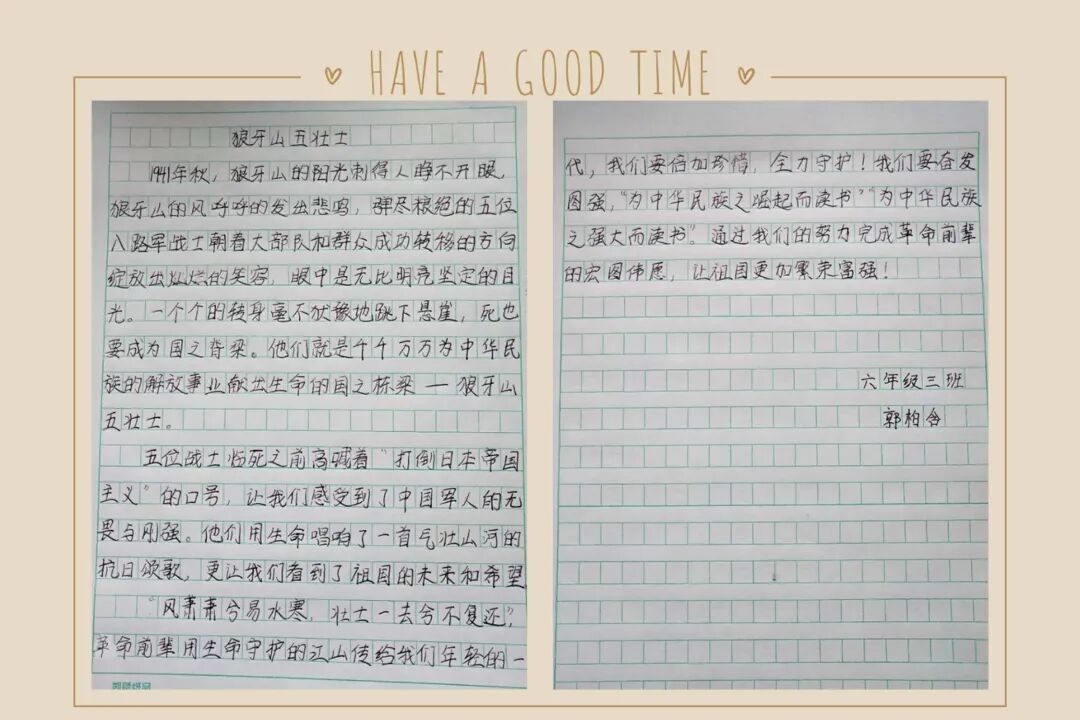 HAVE A GOOD TIME
狼牙山五壮士
1941年秋，狼牙山的阳光刺得人睁不开眼，
狼牙山的风呼呼的发出悲鸣，弹尽粮绝的五位
八路军战士朝着大部队和群众成功转移的方向
绽放出灿烂的笑容，眼中是无比明亮坚定的目
光。一个个的转身毫不犹豫地跳下悬崖，死也
要成为国之脊梁。他们就是千千万万为中华民
族的解放事业献出生命的国之栋梁一狼牙山
五壮士。
五位战士临死之前高喊着“打倒日本帝国
主义”的口号，让我们感受到了中国军人的无
畏与刚强。他们用生命唱响了一首气壮山河的
抗日颂歌，更让我们看到了祖国的未来和希望
“风萧萧兮易水寒，壮士一去兮不复还”，
革命前辈用生命守护的江山传给我们年轻的一
代，我们要倍加珍惜，全力守护！我们要奋发
图强，“为中华民族之崛起而读书”“为中华民族
之强大而读书”。通过我们的努力完成革命前辈
的宏图伟愿，让祖国更加繁荣富强！
六年级三班
郭柏含